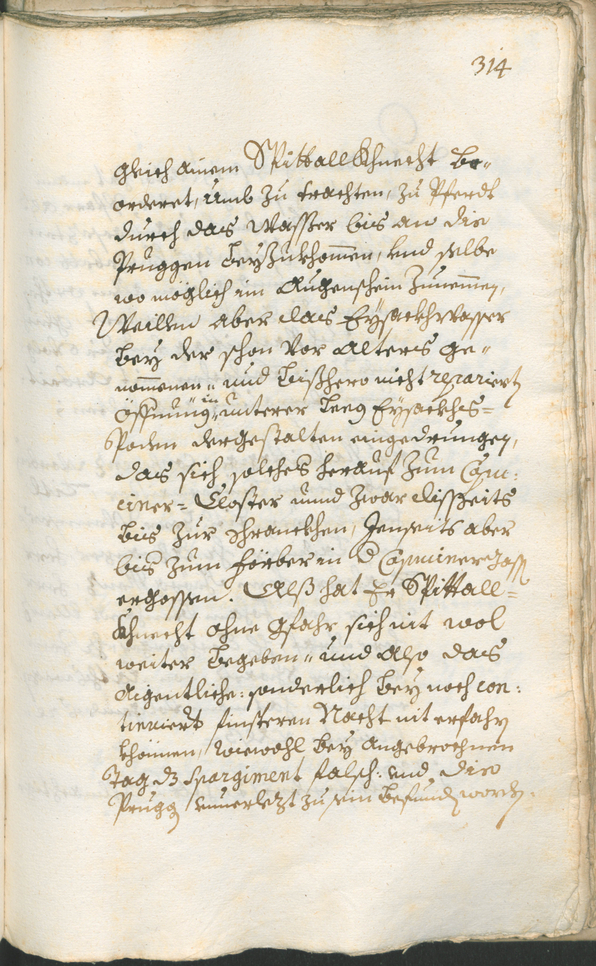 314
gleich ainem Spitall Khnecht be-
orderet, umb zu trachten, zu Pferdt
durch das Wasser bis an die
Pruggen beyzukhomen, und selbe
wo möglich im Augenschein zunemmen,
Weillen aber das Eysackhwasser
bey der schon vor alters ge-
nommenen- und bißhero nicht reparierten
Öffnung, im unterer Eysackhs-
Poden dergestalten eingedrungen,
das sich solches herauf zum Capu:
ciner-Closter unnd zwar disseits
bis zur Schranckhen, Jenseits aber
bis zum Förber in d Capucinergassn
ergossen. Alß hat Er Spittall-
Khnecht ohne gfahr sich nit wol
weiter begeben- und also das
Aigentliche: sonderlich bey noch con:
tinuierts finsteren Nacht nit erfahrn
khönnen, wiewohl bey angebrochnen
Tag dz Spargiment falsch: und die
Prugg unuerlezt zu sein befundn worden.